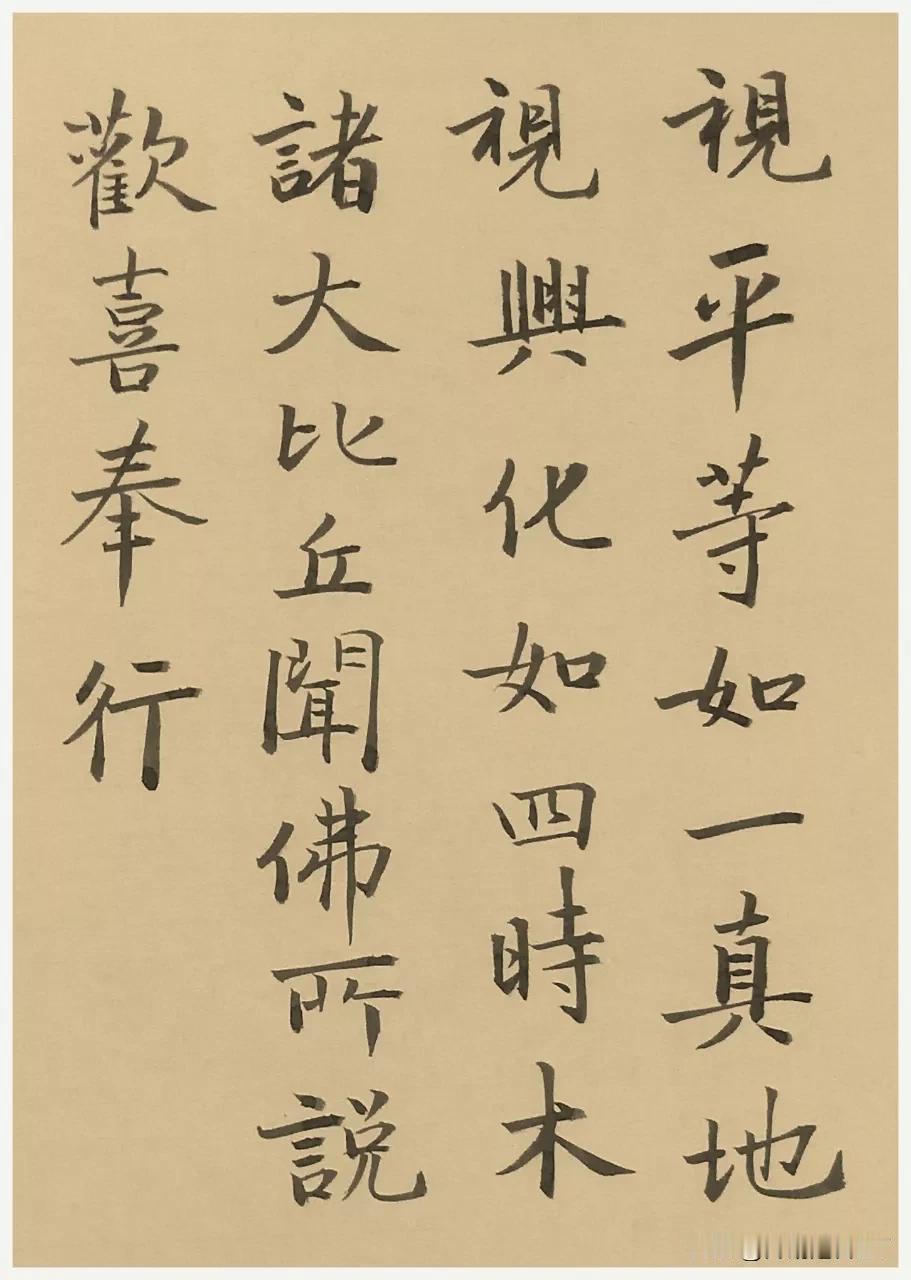 視平等如一真地
視興化如四時木
諸大比丘聞佛所説
歡喜奉行